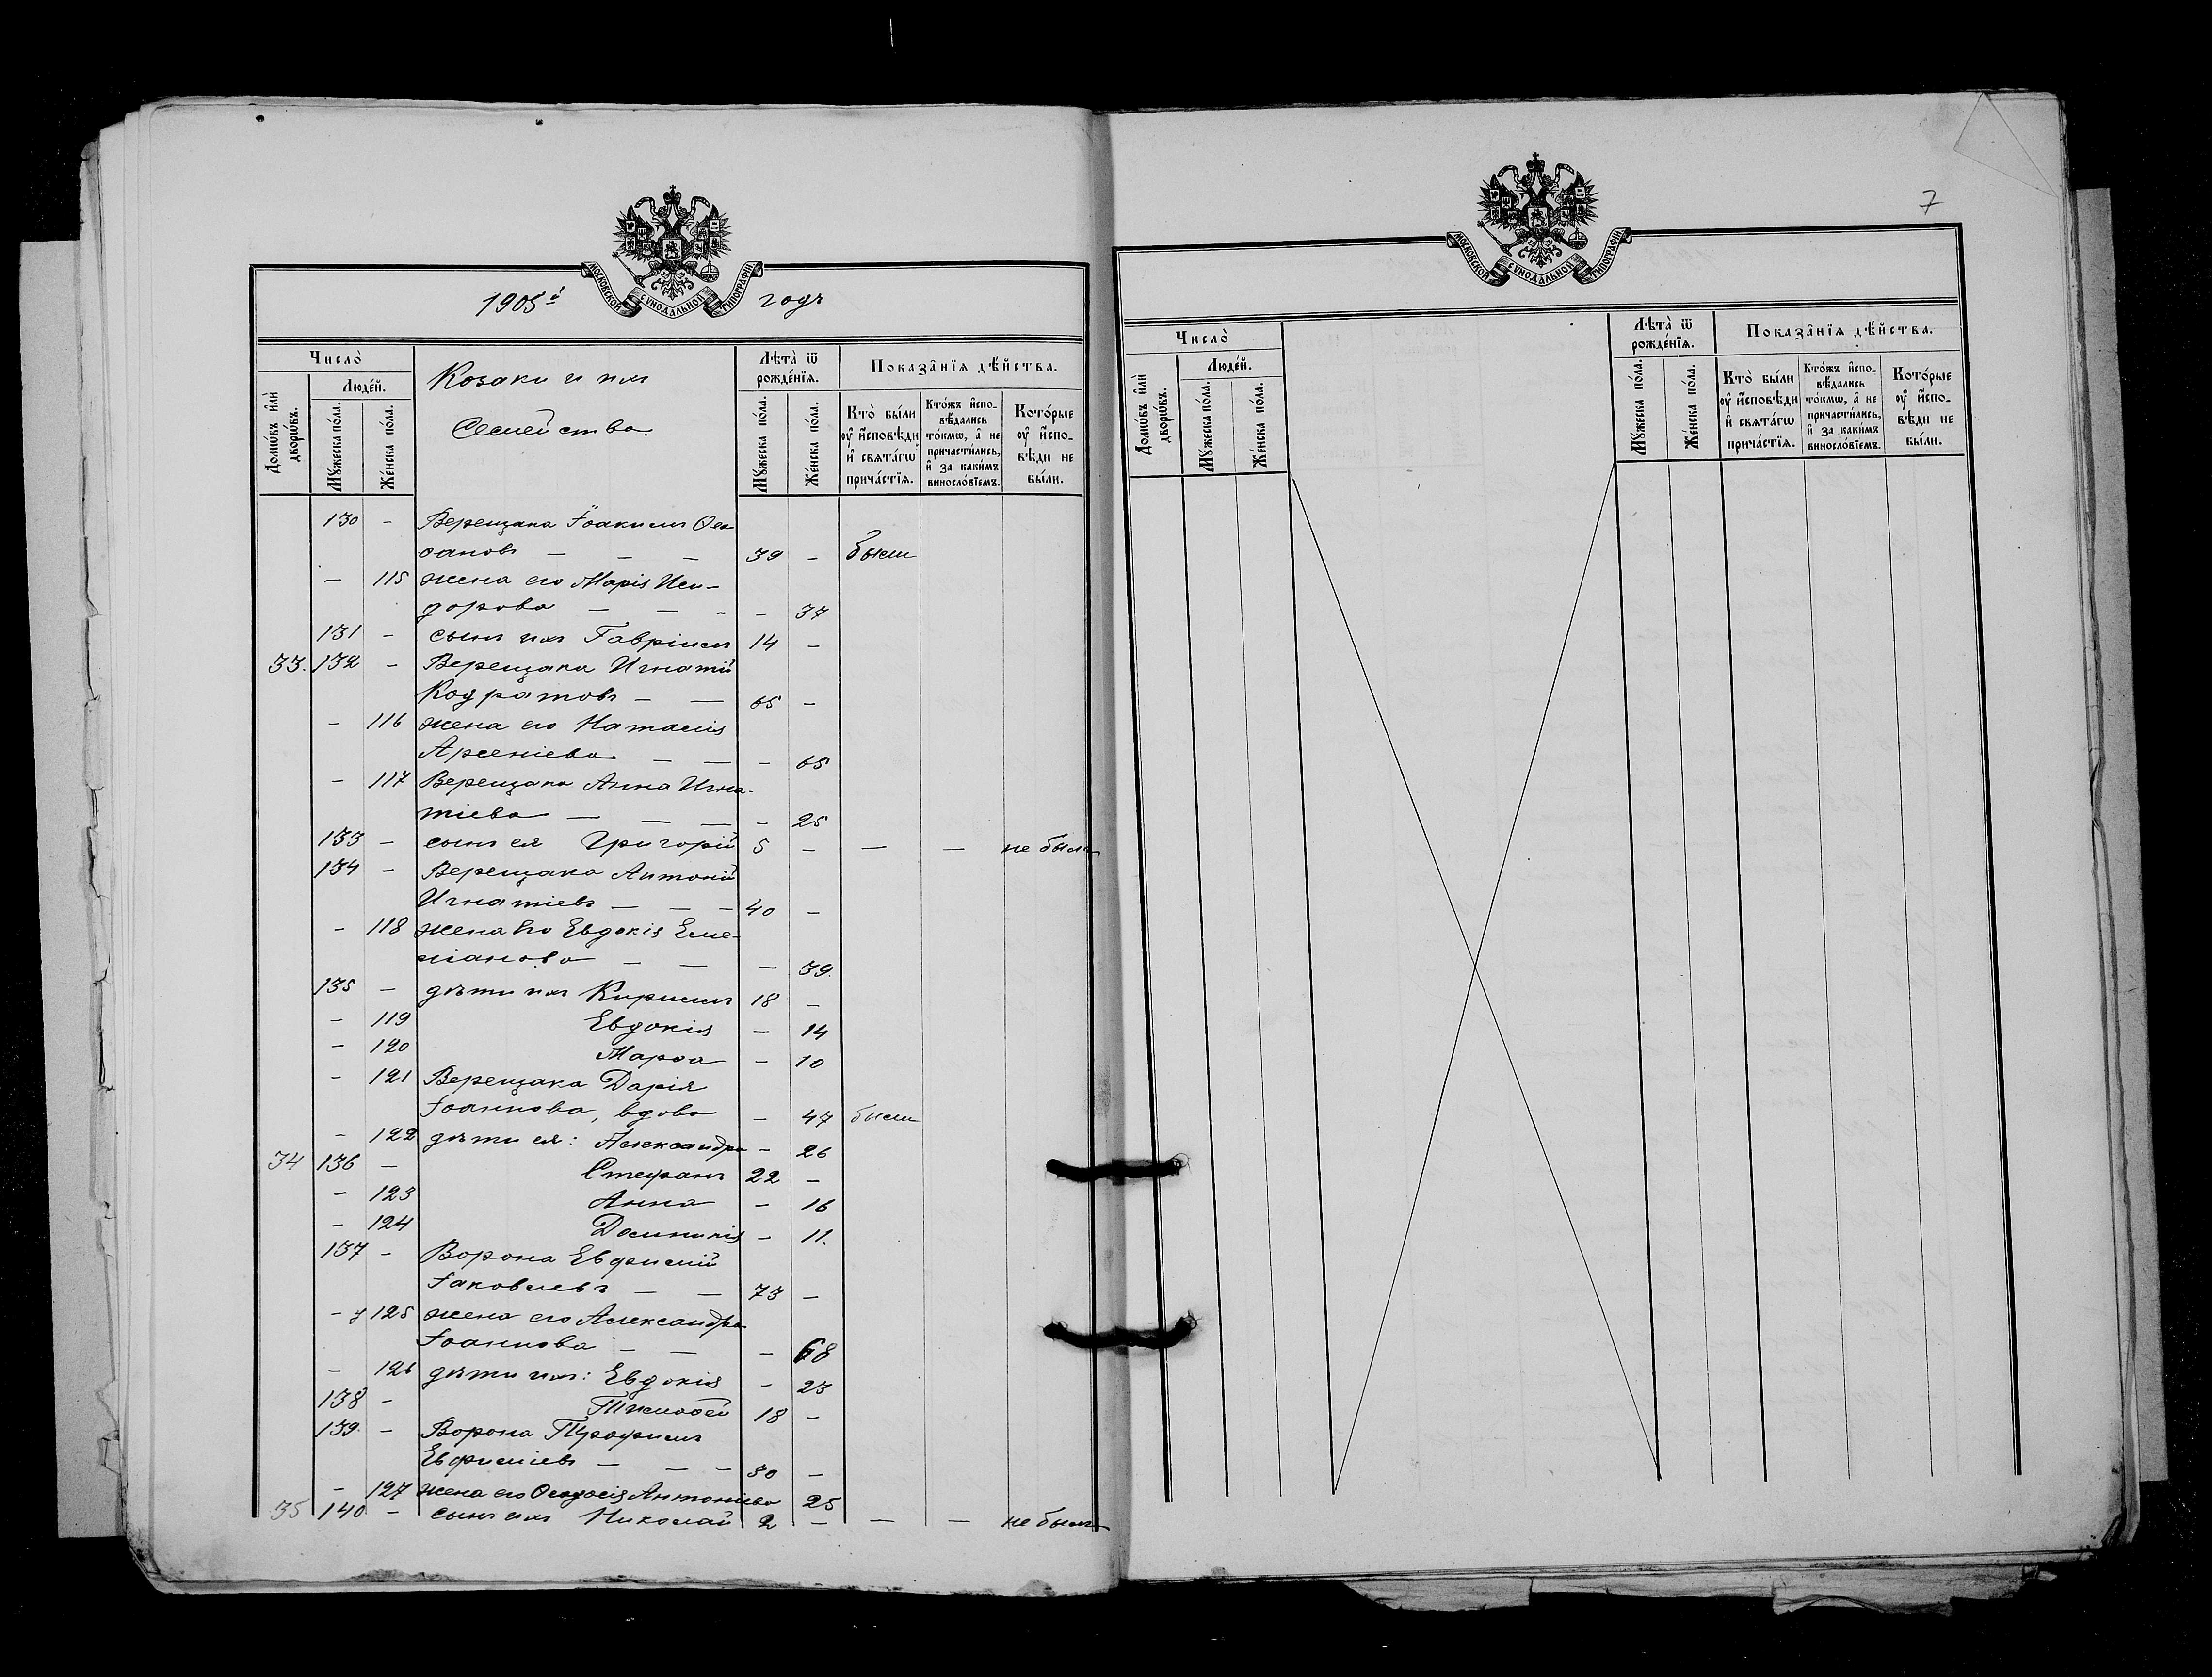 МОСКОВСКОЙ СѴНОДАЛЬНОЙ ТИПОГРАФІИ
1905й годъ
Число̀
Людей.
Домѡвъ илѝ дворѡвъ.
Мꙋжеска по́ла.
Же́нска по́ла.
Козаки и ихъ
Семейства.
Лѣта̀ ѿ рожде́нїѧ.
Мꙋжеска по́ла.
Же́нска по́ла.
Показа̂нїѧ дѣ́йства.
Кто̀ бы́ли оу҆ и҆сповѣди и҆ свѧта́гѡ прича́стїѧ.
Кто́жъ и҆спо-вѣдались то́кмѡ, а҆ не причасти́лись, и҆ за каки́мъ винослові́емъ.
Кото́рые оу҆ и҆спо-вѣди не бы́ли.
130 - Верещака Іоакимъ Ѳео-
фановъ — — — 39 - были
- 115 жена его Марія Иси-
дорова — — - - 37
131 - сынъ ихъ Гавріилъ 14 -
33. 132 - Верещака Игнатій
Кодратовъ — — 65 -
- 116 жена его Наталія
Арсеніева — — - 65
- 117 Верещака Анна Игна-
тіева — — — - 25
133 - сынъ ея Григорій 5 - — — не былъ
134 - Верещака Антоній
Игнатіевъ — — - 40 -
- 118 жена его Евдокія Еме-
ліанова — — - 39.
135 - дѣти ихъ Кириллъ 18 -
- 119 Евдокія - 14
- 120 Марѳа - 10
- 121 Верещака Дарія
Іоаннова, вдова - 47 были
- 122 дѣти ея: Александра - 26
34 136 - Стефанъ 22 -
- 123 Анна - 16
- 124 Домникія - 11.
137 - Ворона Евфимій
Іаковлевъ — — 73 -
- 125 жена его Александра
Іоаннова — — - 68
- 126 дѣти ихъ: Евдокія - 23
138 - Тимоѳей 18 -
139. - Ворона Трофимъ
Евфиміевъ — — - 30 -
- 127 жена его Ѳеодосія Антоніева 25
35 140 - сынъ ихъ Николай 2 - — — не былъ
7
МОСКОВСКОЙ СѴНОДАЛЬНОЙ ТИПОГРАФІИ
Число̀
Людей.
Домѡвъ илѝ дворѡвъ.
Мꙋжеска по́ла.
Же́нска по́ла.
Лѣта̀ ѿ рожде́нїѧ.
Мꙋжеска по́ла.
Же́нска по́ла.
Показа̂нїѧ дѣ́йства.
Кто̀ бы́ли оу҆ и҆сповѣди и҆ свѧта́гѡ прича́стїѧ.
Кто́жъ и҆спо-вѣдались то́кмѡ, а҆ не причасти́лись, и҆ за каки́мъ винослові́емъ.
Кото́рые оу҆ и҆спо-вѣди не бы́ли.